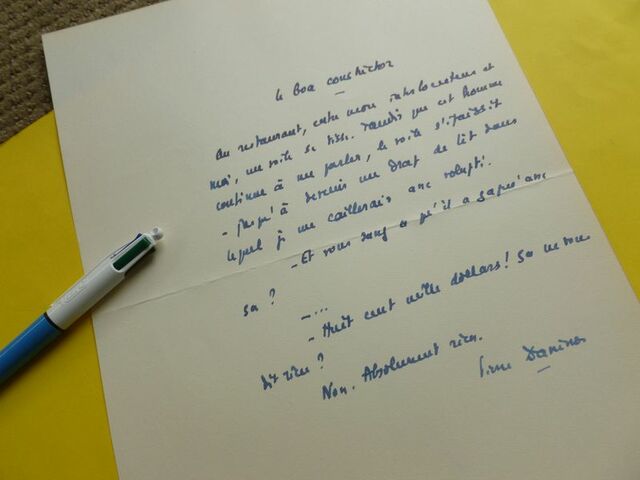 Le boa constrictor
Au restaurant, entre mon interlocuteur et
moi, un voile se tisse. Tandis que cet homme
continue à me parler, le voile s'épaissit
- jusqu'à devenir un drap de lit dans
lequel je me caillerais avec volupté.
- Et vous savez ce qu'il a gagné avec
ça ?
- ...
- Huit cent mille dollars ! Ça ne vous
dit rien ?
Non. Absolument rien.
Pierre Daninos